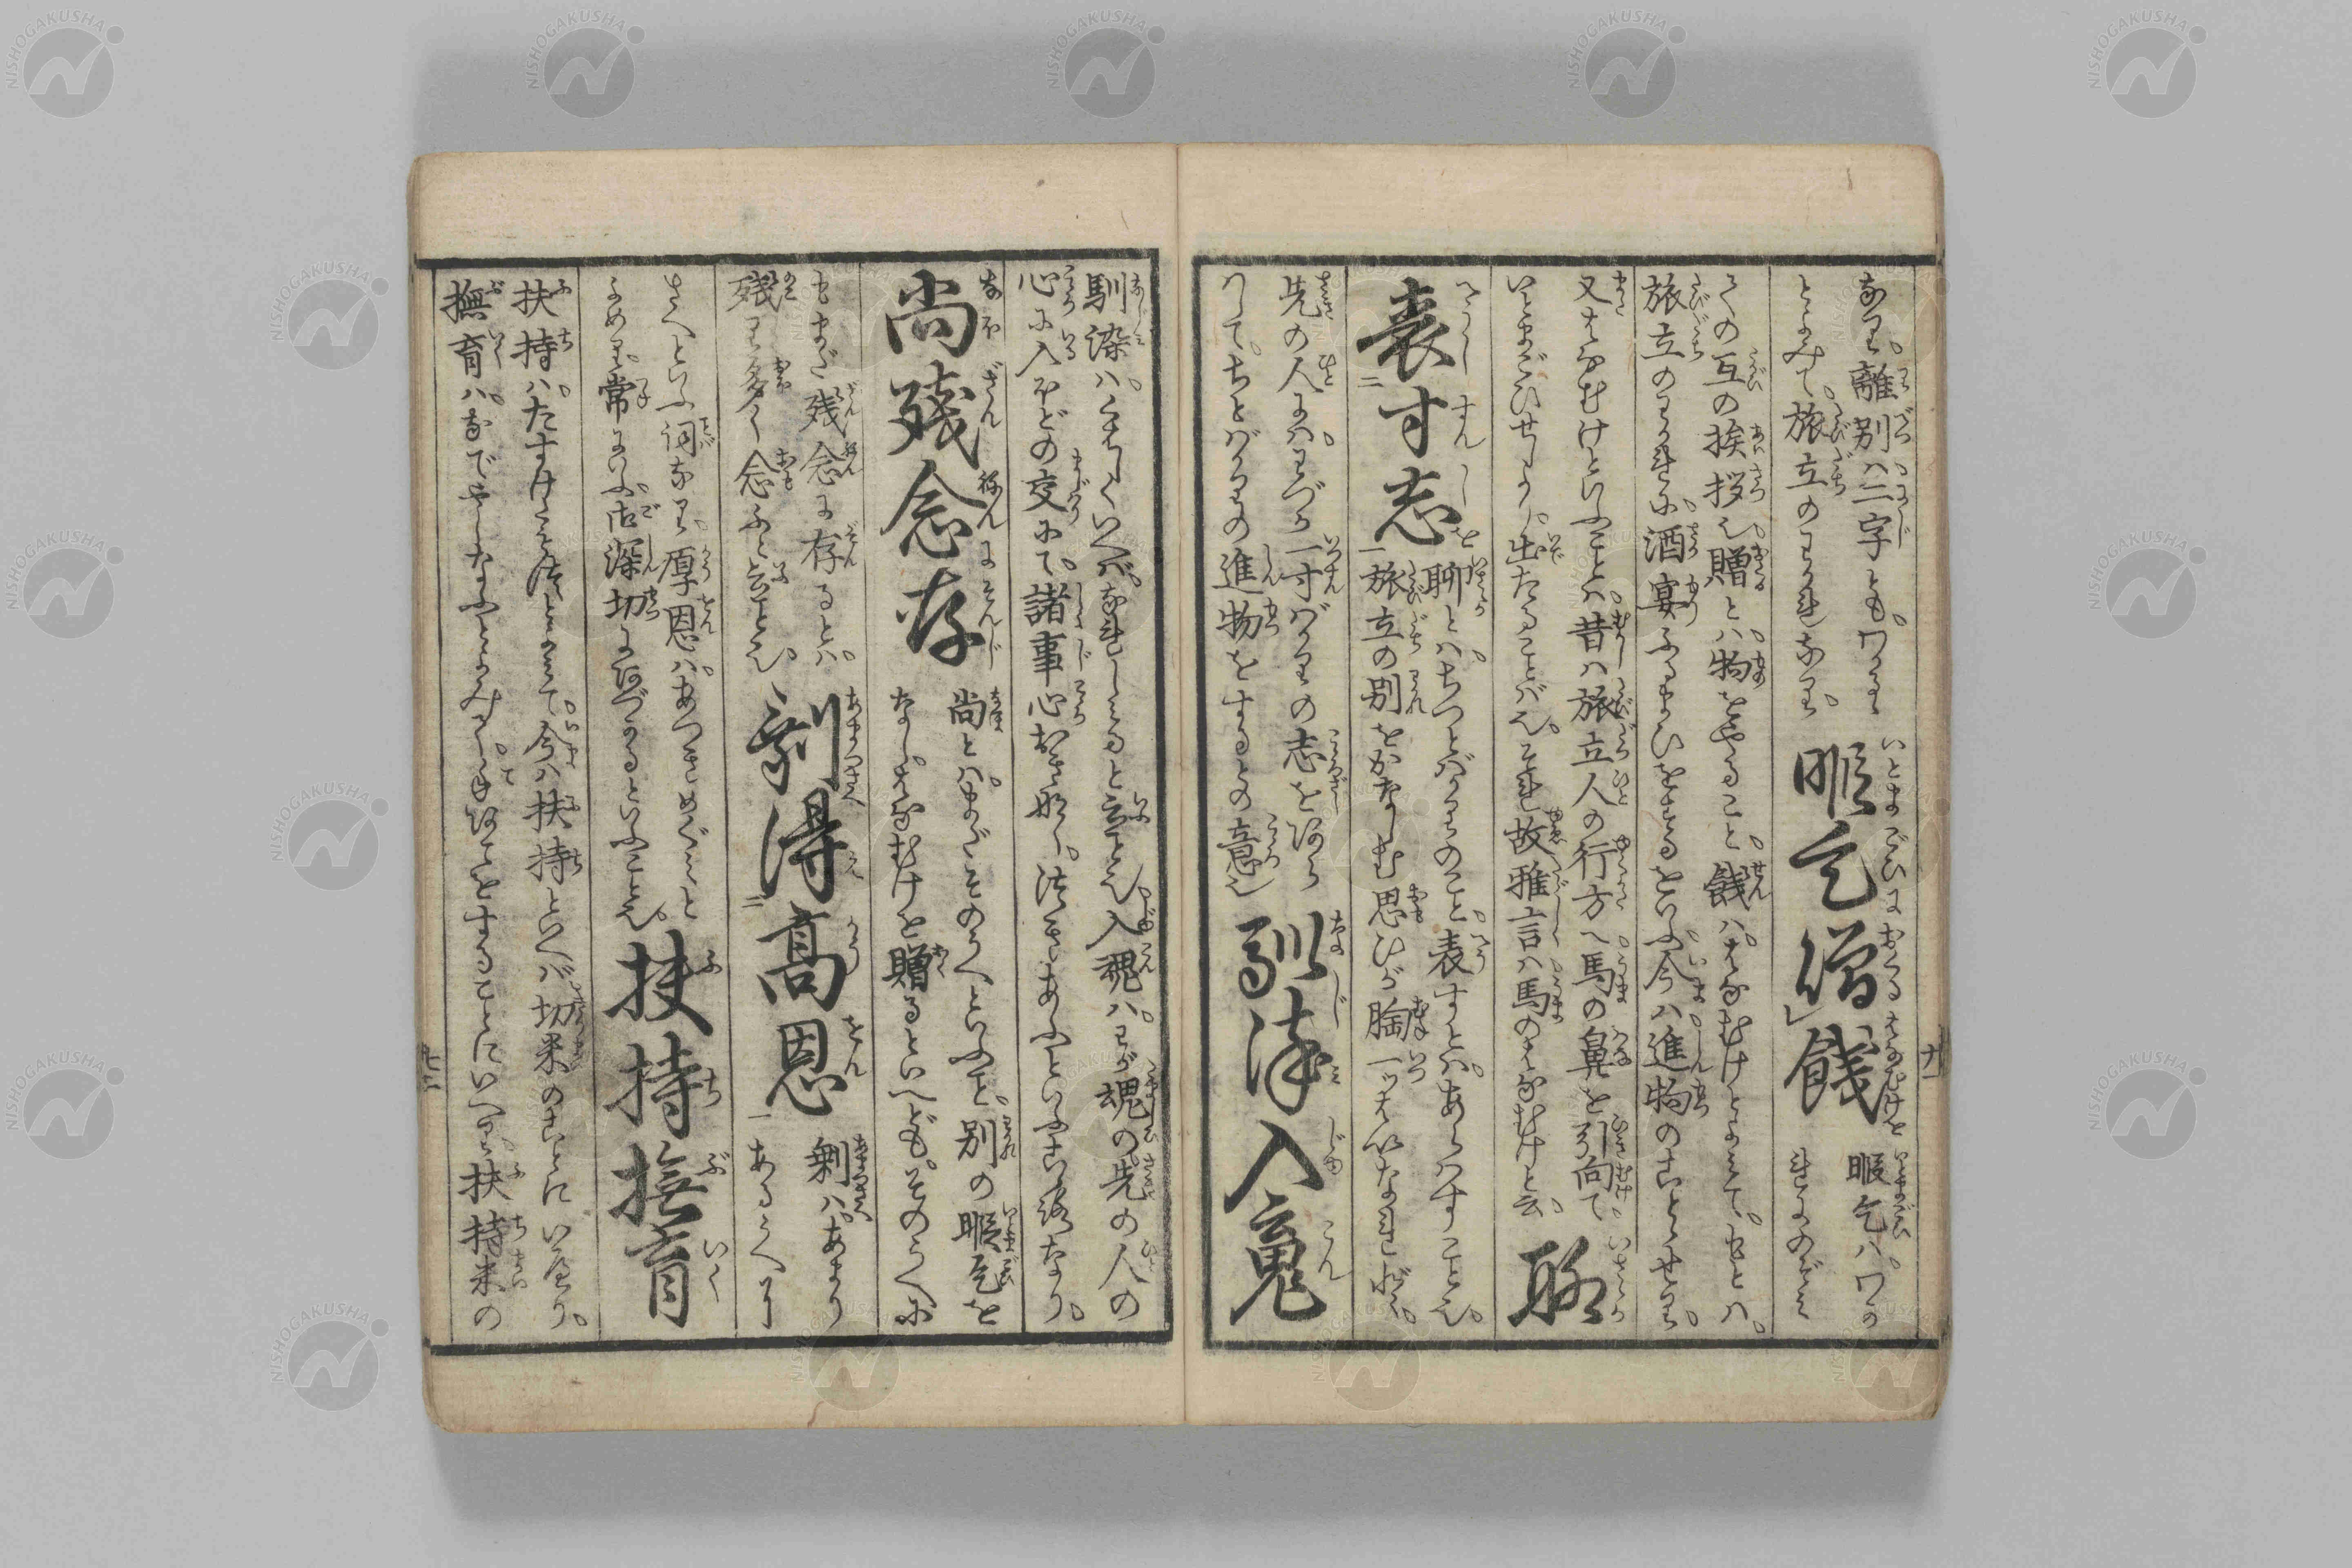 なり。離別ハ二字とも。ワかる
とよみて。旅立のわかれなり。
暇乞贈餞
暇乞ハ。ワか
れにのぞミ
ての互の挨拶也。贈とハ。物をやること。餞ハ。はなむけとよミて。もとハ。
旅立のわかれに。酒宴ふるまひをするをいふ。今ハ進物のことゝせり。
又はなむけといふことハ。昔ハ旅立人の行方へ。馬の鼻を引向て。
いとまごひせしより。出たることば也。それ故雅言ハ馬のはなむけと云。
聊
表寸志
聊とハ。ちつとばかりのこと。表すとハ。あらハすこと也。
旅立の別をかなしむ思ひが胸一ッはいなれど。
先の人にハ。わづか一寸ばかりの志をあら
ハして。ちとばかりの進物をするとの意也
馴染入魂
馴染ハ。くハしくいへバ。なれしミると云こと也。入魂ハ。わが魂の。先の人の
心に入ほどの交にて。諸事心おき無し。つきあふといふこゝろなり。
尚残念存
尚とハ。まだそのうへといふこと。別の暇乞を
なし。はなむけを贈るといへども。そのうへに
もまだ残念に存るとハ。
残り多く念ふと云こと也。
剰得高恩
剰ハ。あまり
あるうへに
さへといふ詞なり。厚恩ハ。あつきめぐミと
よめり。常にいふ。御深切にあづかるといふこと也。
扶持撫育
扶持ハ。たすけたもつとよミて。今ハ扶持といへバ切米のことにいへり。
撫育ハ。なでやしなふとよみし。手あてをすることにいへり。扶持米の